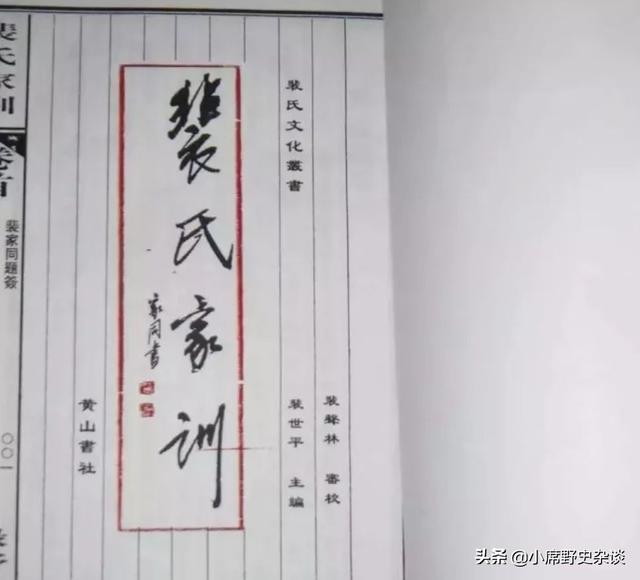 裴氏文化叢書
裴聲林 審校
裴世平 主編
裴氏家训
家同書
黄山書社
裴氏家训
卷首
裴家同題簽
〇〇一
头条 @小席野史杂谈